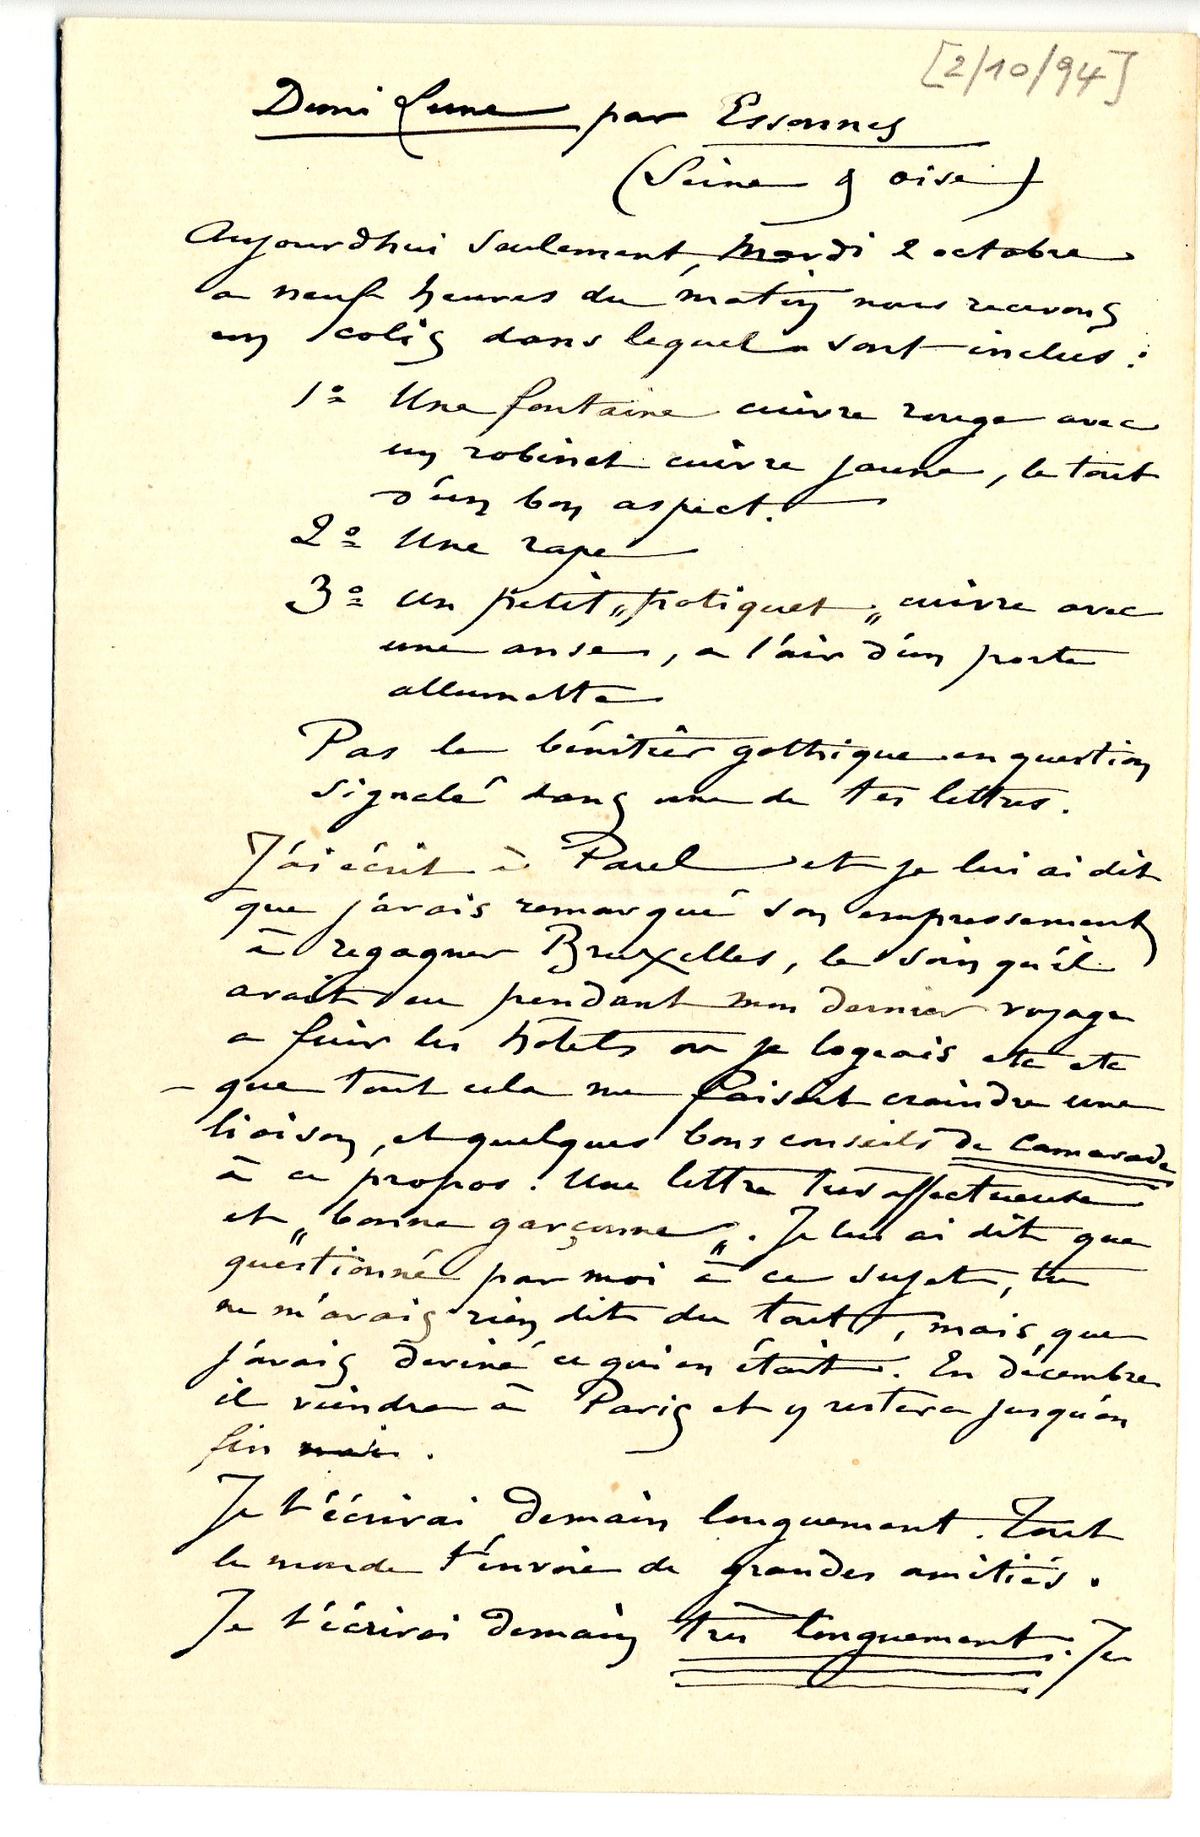 [2/10/94]
Demi Lune par Essonnes
(Seine & oise)
Aujourdhui seulement, Mardi 2 octobre
a neuf heures du matin nous recevons
un colis dans lequel sont inclus :
1º Une fontaine cuivre rouge avec
un robinet cuivre jaune, le tout
d'un bon aspect.
2º Une rape
3º un petit „potiquet„ cuivre avec
une anse, a l'air d'un porte
allumette
Pas le bénitier gothique en question
signalé dans une de tes lettres.
J'ai écrit à Paul et je lui ai dit
que j'avais remarqué son empressement
à regagner Bruxelles, le soin qu'il
avait eu pendant mon dernier voyage
a fuir les hôtels ou je logeais etc etc
– que tout cela me faisait craindre une
liaison, et quelques bons conseils de Camarade
à ce propos. Une lettre très affectueuse
et „bonne garçonne„. Je lui ai dit que
questionné par moi à ce sujet, tu
ne m'avais rien dit du tout, mais que
j'avais deviné ce qui en était. En décembre
il viendra à Paris et y restera jusqu'en
fin mai.
Je t'écrirai demain longuement. Tout
le monde t'envoie de grandes amitiés.
Je t'écrirai demain très longuement. Je